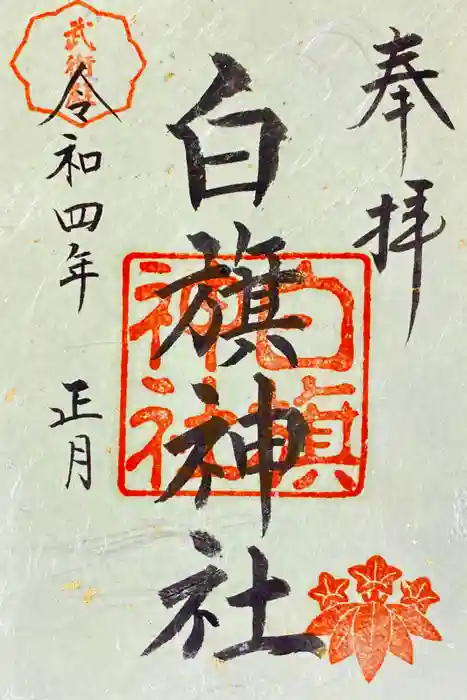 奉拝
白旗神社
白旗
神社
令和四年 正月